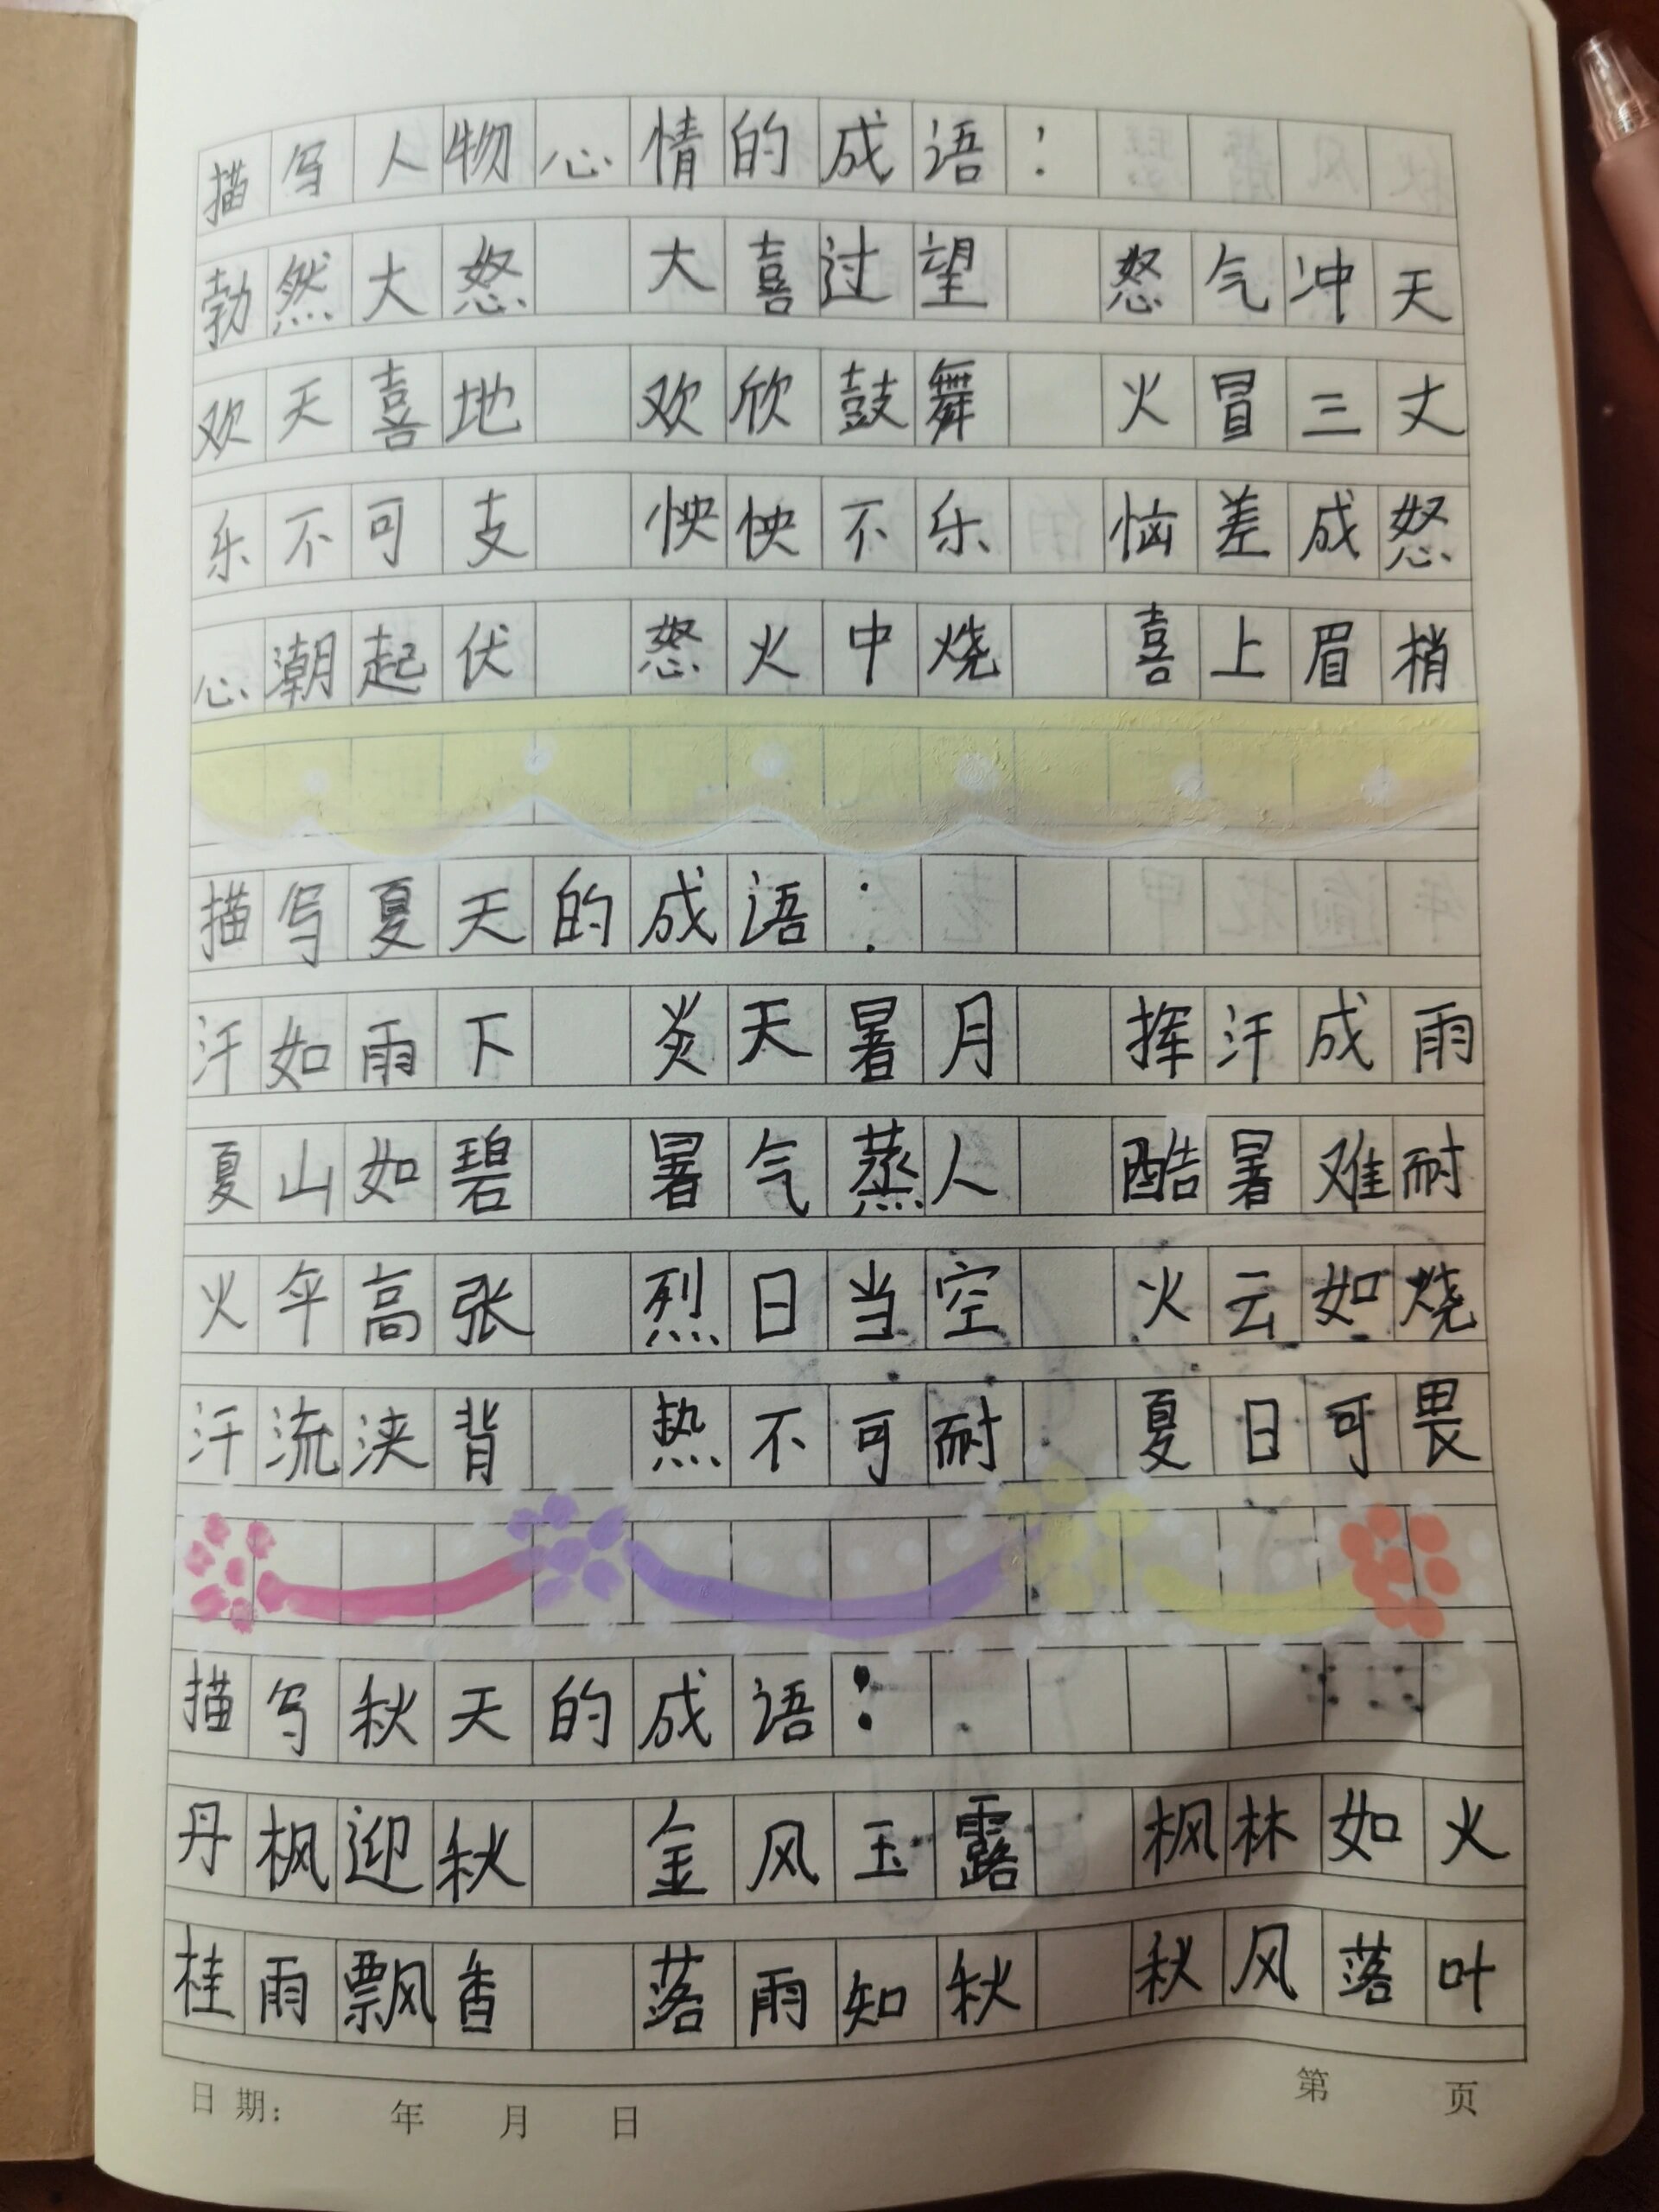 描写人物心情的成语：
勃然大怒 大喜过望 怒气冲天
欢天喜地 欢欣鼓舞 火冒三丈
乐不可支 怏怏不乐 恼差成怒
心潮起伏 怒火中烧 喜上眉梢
描写夏天的成语：
汗如雨下 炎天暑月 挥汗成雨
夏山如碧 暑气蒸人 酷暑难耐
火伞高张 烈日当空 火云如烧
汗流浃背 热不可耐 夏日可畏
描写秋天的成语：
丹枫迎秋 金风玉露 枫林如火
桂雨飘香 落雨知秋 秋风落叶
日期： 年 月 日 第 页